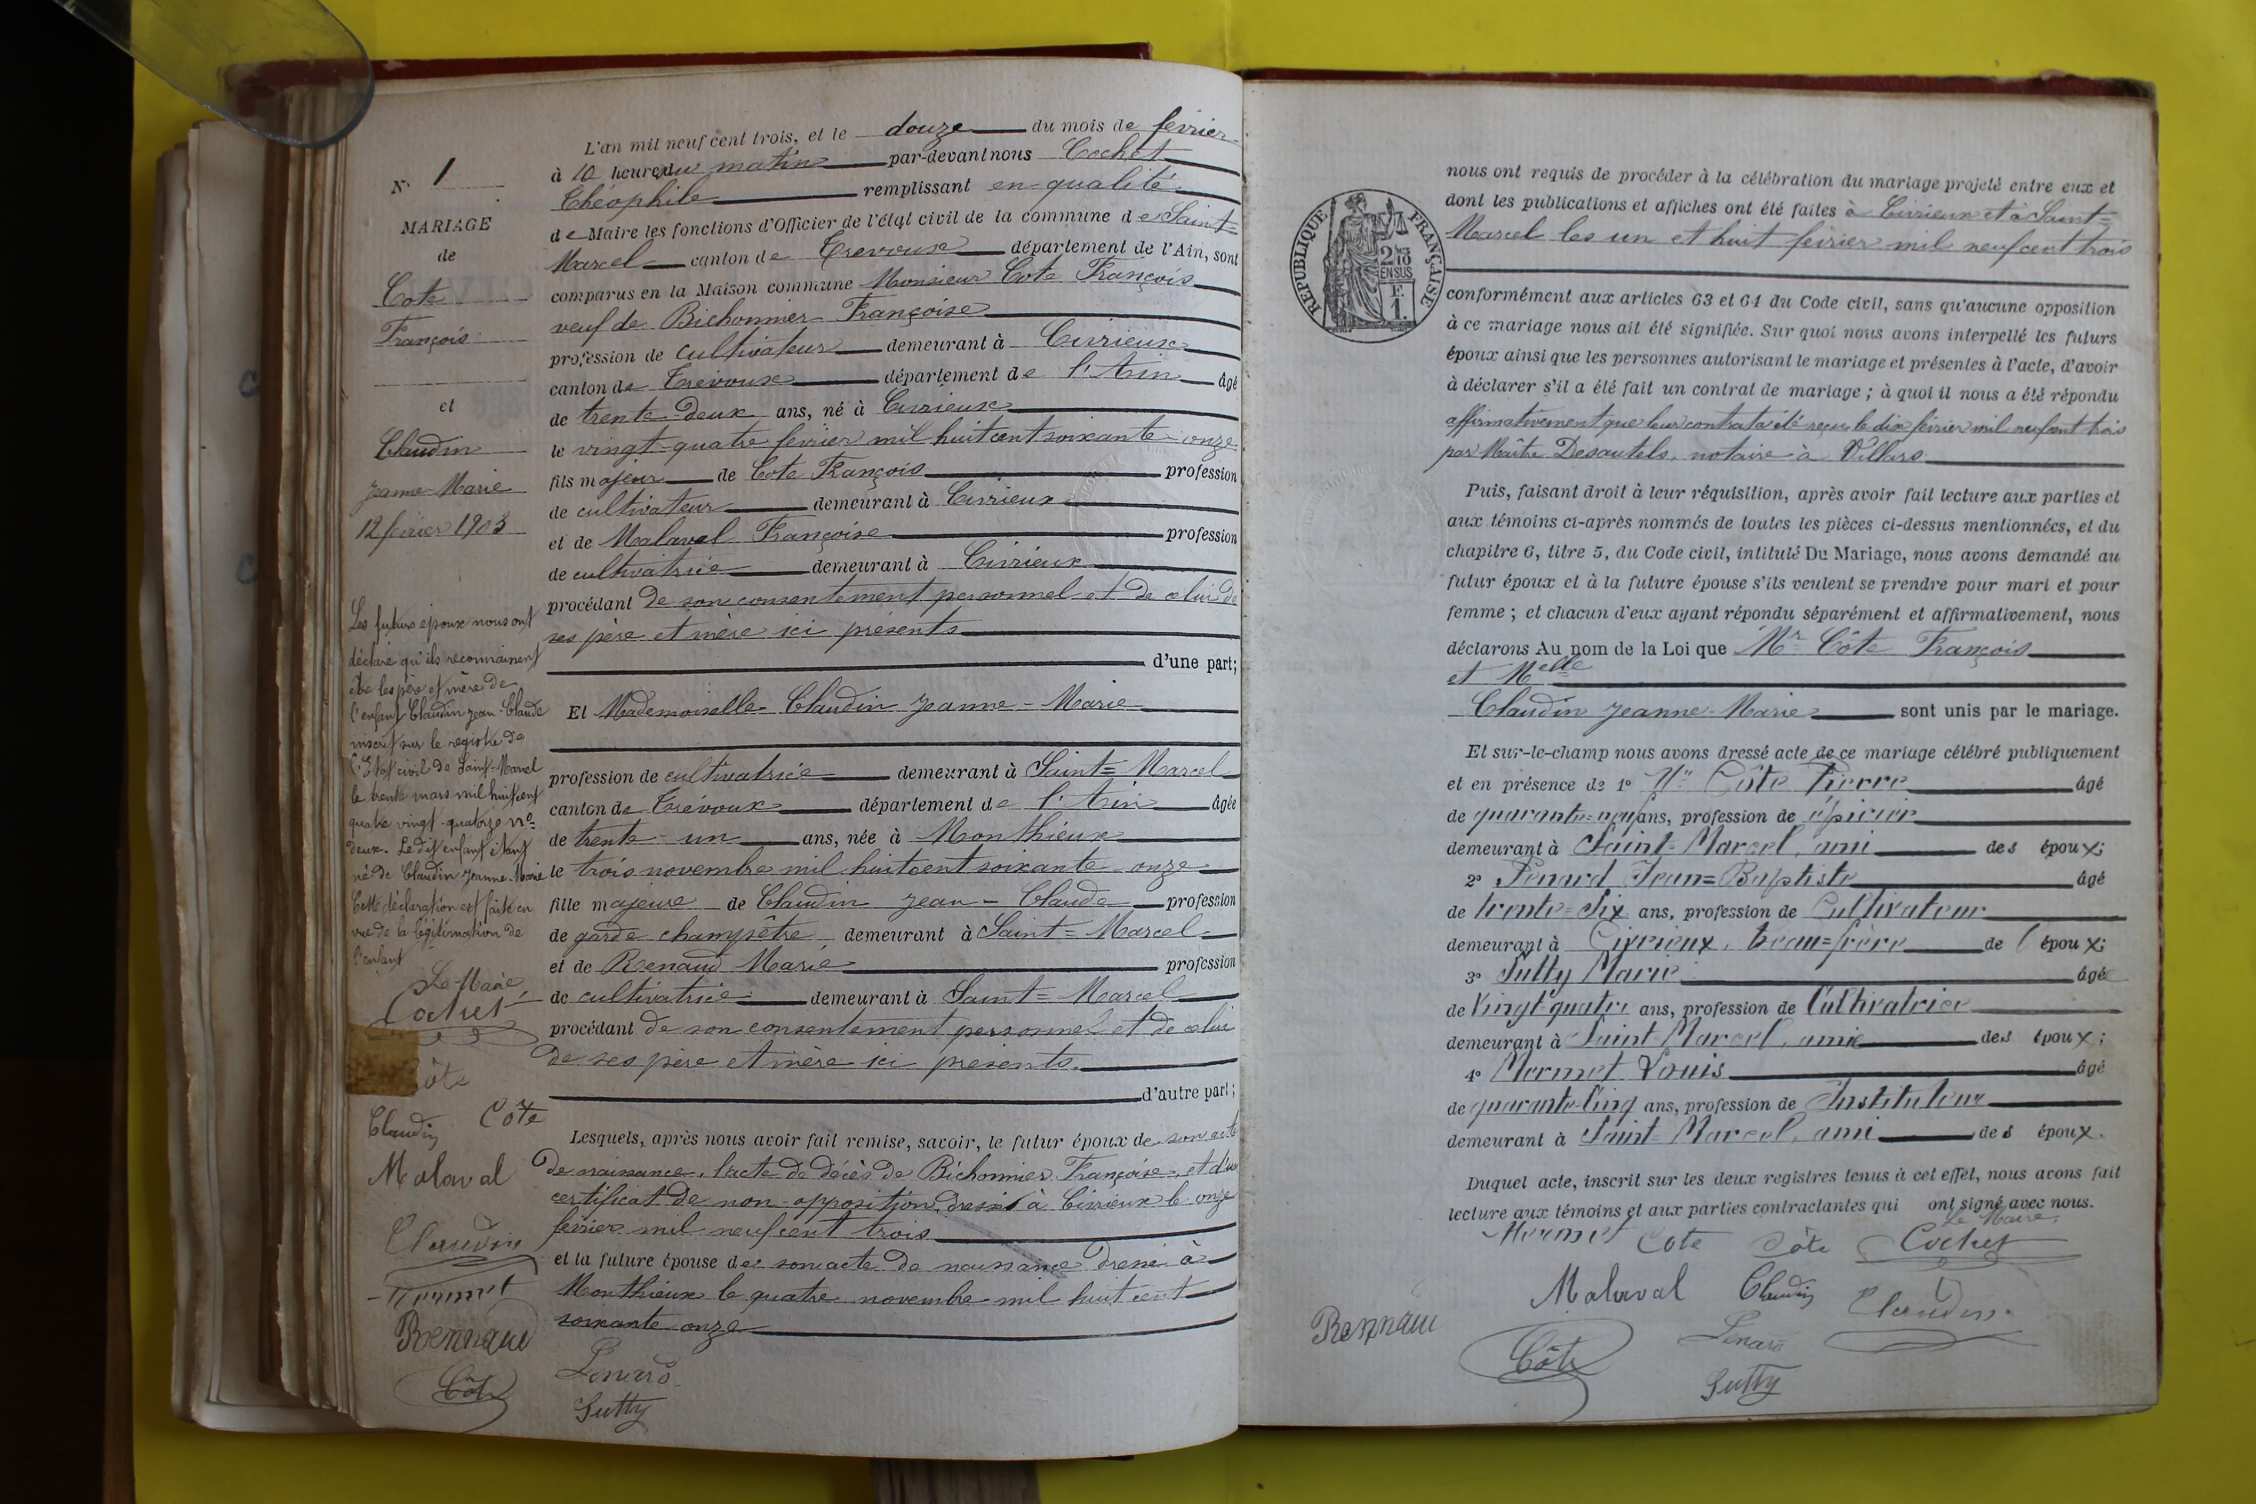 N° 1
MARIAGE
de
Cote
François
et
Claudin
Jeanne-Marie
12 février 1903
Les futurs époux nous ont
déclaré qu'ils reconnaissent
être les père et mère de
l'enfant Claudin Jean-Claude
inscrit sur le registre de
l'Etat civil de Saint-Marcel
le trente mars mil huit cent
quatre vingt-quatorze n°
deux. Le dit enfant étant
né de Claudin Jeanne-Marie
Cette déclaration est faite en
vue de la légitimation de
l'enfant
Le Maire
Cochet
Côte
Claudin Côte
Malaval
Claudin
Mermet
Rennaud
Côte
L'an mil neuf cent trois, et le douze du mois de février
à 10 heures du matin par-devant nous Cochet
Théophile remplissant en qualité
de Maire les fonctions d'Officier de l'état civil de la commune de Saint=
Marcel canton de Trevoux département de l'Ain, sont
comparus en la Maison commune Monsieur Cote François
veuf de Bichonnier Françoise
profession de cultivateur demeurant à Civrieux
canton de Trévoux département de l'Ain âgé
de trente-deux ans, né à Civrieux
le vingt-quatre février mil huit cent soixante-onze
fils majeur de Cote François profession
de cultivateur demeurant à Civrieux
et de Malaval Françoise profession
de cultivatrice demeurant à Civrieux
procédant de son consentement personnel et de celui de
ses père et mère ici présents
d'une part;
Et Mademoiselle Claudin Jeanne-Marie
profession de cultivatrice demeurant à Saint=Marcel
canton de Trévoux département de l'Ain âgée
de trente-un ans, née à Monthieux
le trois novembre mil huit cent soixante-onze
fille majeure de Claudin Jean-Claude profession
de garde champêtre demeurant à Saint=Marcel
et de Renaud Marie profession
de cultivatrice demeurant à Saint=Marcel
procédant de son consentement personnel et de celui
de ses père et mère ici présents.
d'autre part;
Lesquels, après nous avoir fait remise, savoir, le futur époux de son acte
de naissance, l'acte de décès de Bichonnier Françoise, et d'un
certificat de non-opposition, dressé à Civrieux le onze
février mil neuf cent trois
et la future épouse de son acte de naissance dressé à
Monthieux le quatre novembre mil huit cent
soixante-onze
Penard
Sutty
RÉPUBLIQUE FRANÇAISE
2/10
EN SUS
F.
1.
nous ont requis de procéder à la célébration du mariage projeté entre eux et
dont les publications et affiches ont été faites à Civrieux et à Saint=
Marcel les un et huit février mil neuf cent trois
conformément aux articles 63 et 64 du Code civil, sans qu'aucune opposition
à ce mariage nous ait été signifiée. Sur quoi nous avons interpellé les futurs
époux ainsi que les personnes autorisant le mariage et présentes à l'acte, d'avoir
à déclarer s'il a été fait un contrat de mariage ; à quoi il nous a été répondu
affirmativement que leur contrat a été reçu le dix février mil neuf cent trois
par Maître Desautels, notaire à Villars
Puis, faisant droit à leur réquisition, après avoir fait lecture aux parties et
aux témoins ci-après nommés de toutes les pièces ci-dessus mentionnées, et du
chapitre 6, titre 5, du Code civil, intitulé Du Mariage, nous avons demandé au
futur époux et à la future épouse s'ils veulent se prendre pour mari et pour
femme ; et chacun d'eux ayant répondu séparément et affirmativement, nous
déclarons Au nom de la Loi que Mr Côte François
et Melle
Claudin Jeanne-Marie sont unis par le mariage.
Et sur-le-champ nous avons dressé acte de ce mariage célébré publiquement
et en présence de 1° Mr Côte Pierre âgé
de quarante=neuf ans, profession de épicier
demeurant à Saint-Marcel, ami des époux;
2° Penard Jean=Baptiste âgé
de trente=Six ans, profession de Cultivateur
demeurant à Civrieux, beau=frère de l'époux;
3° Sutty Marie âgée
de Vingt-quatre ans, profession de Cultivatrice
demeurant à Saint Marcel, amie des époux;
4° Mermet Louis âgé
de quarante-Cinq ans, profession de Instituteur
demeurant à Saint-Marcel, ami des époux.
Duquel acte, inscrit sur les deux registres tenus à cet effet, nous avons fait
lecture aux témoins et aux parties contractantes qui ont signé avec nous.
Le Maire,
Mermet Cote Côte Cochet
Malaval Claudin Claudin
Rennaud
Côte
Penard
Sutty